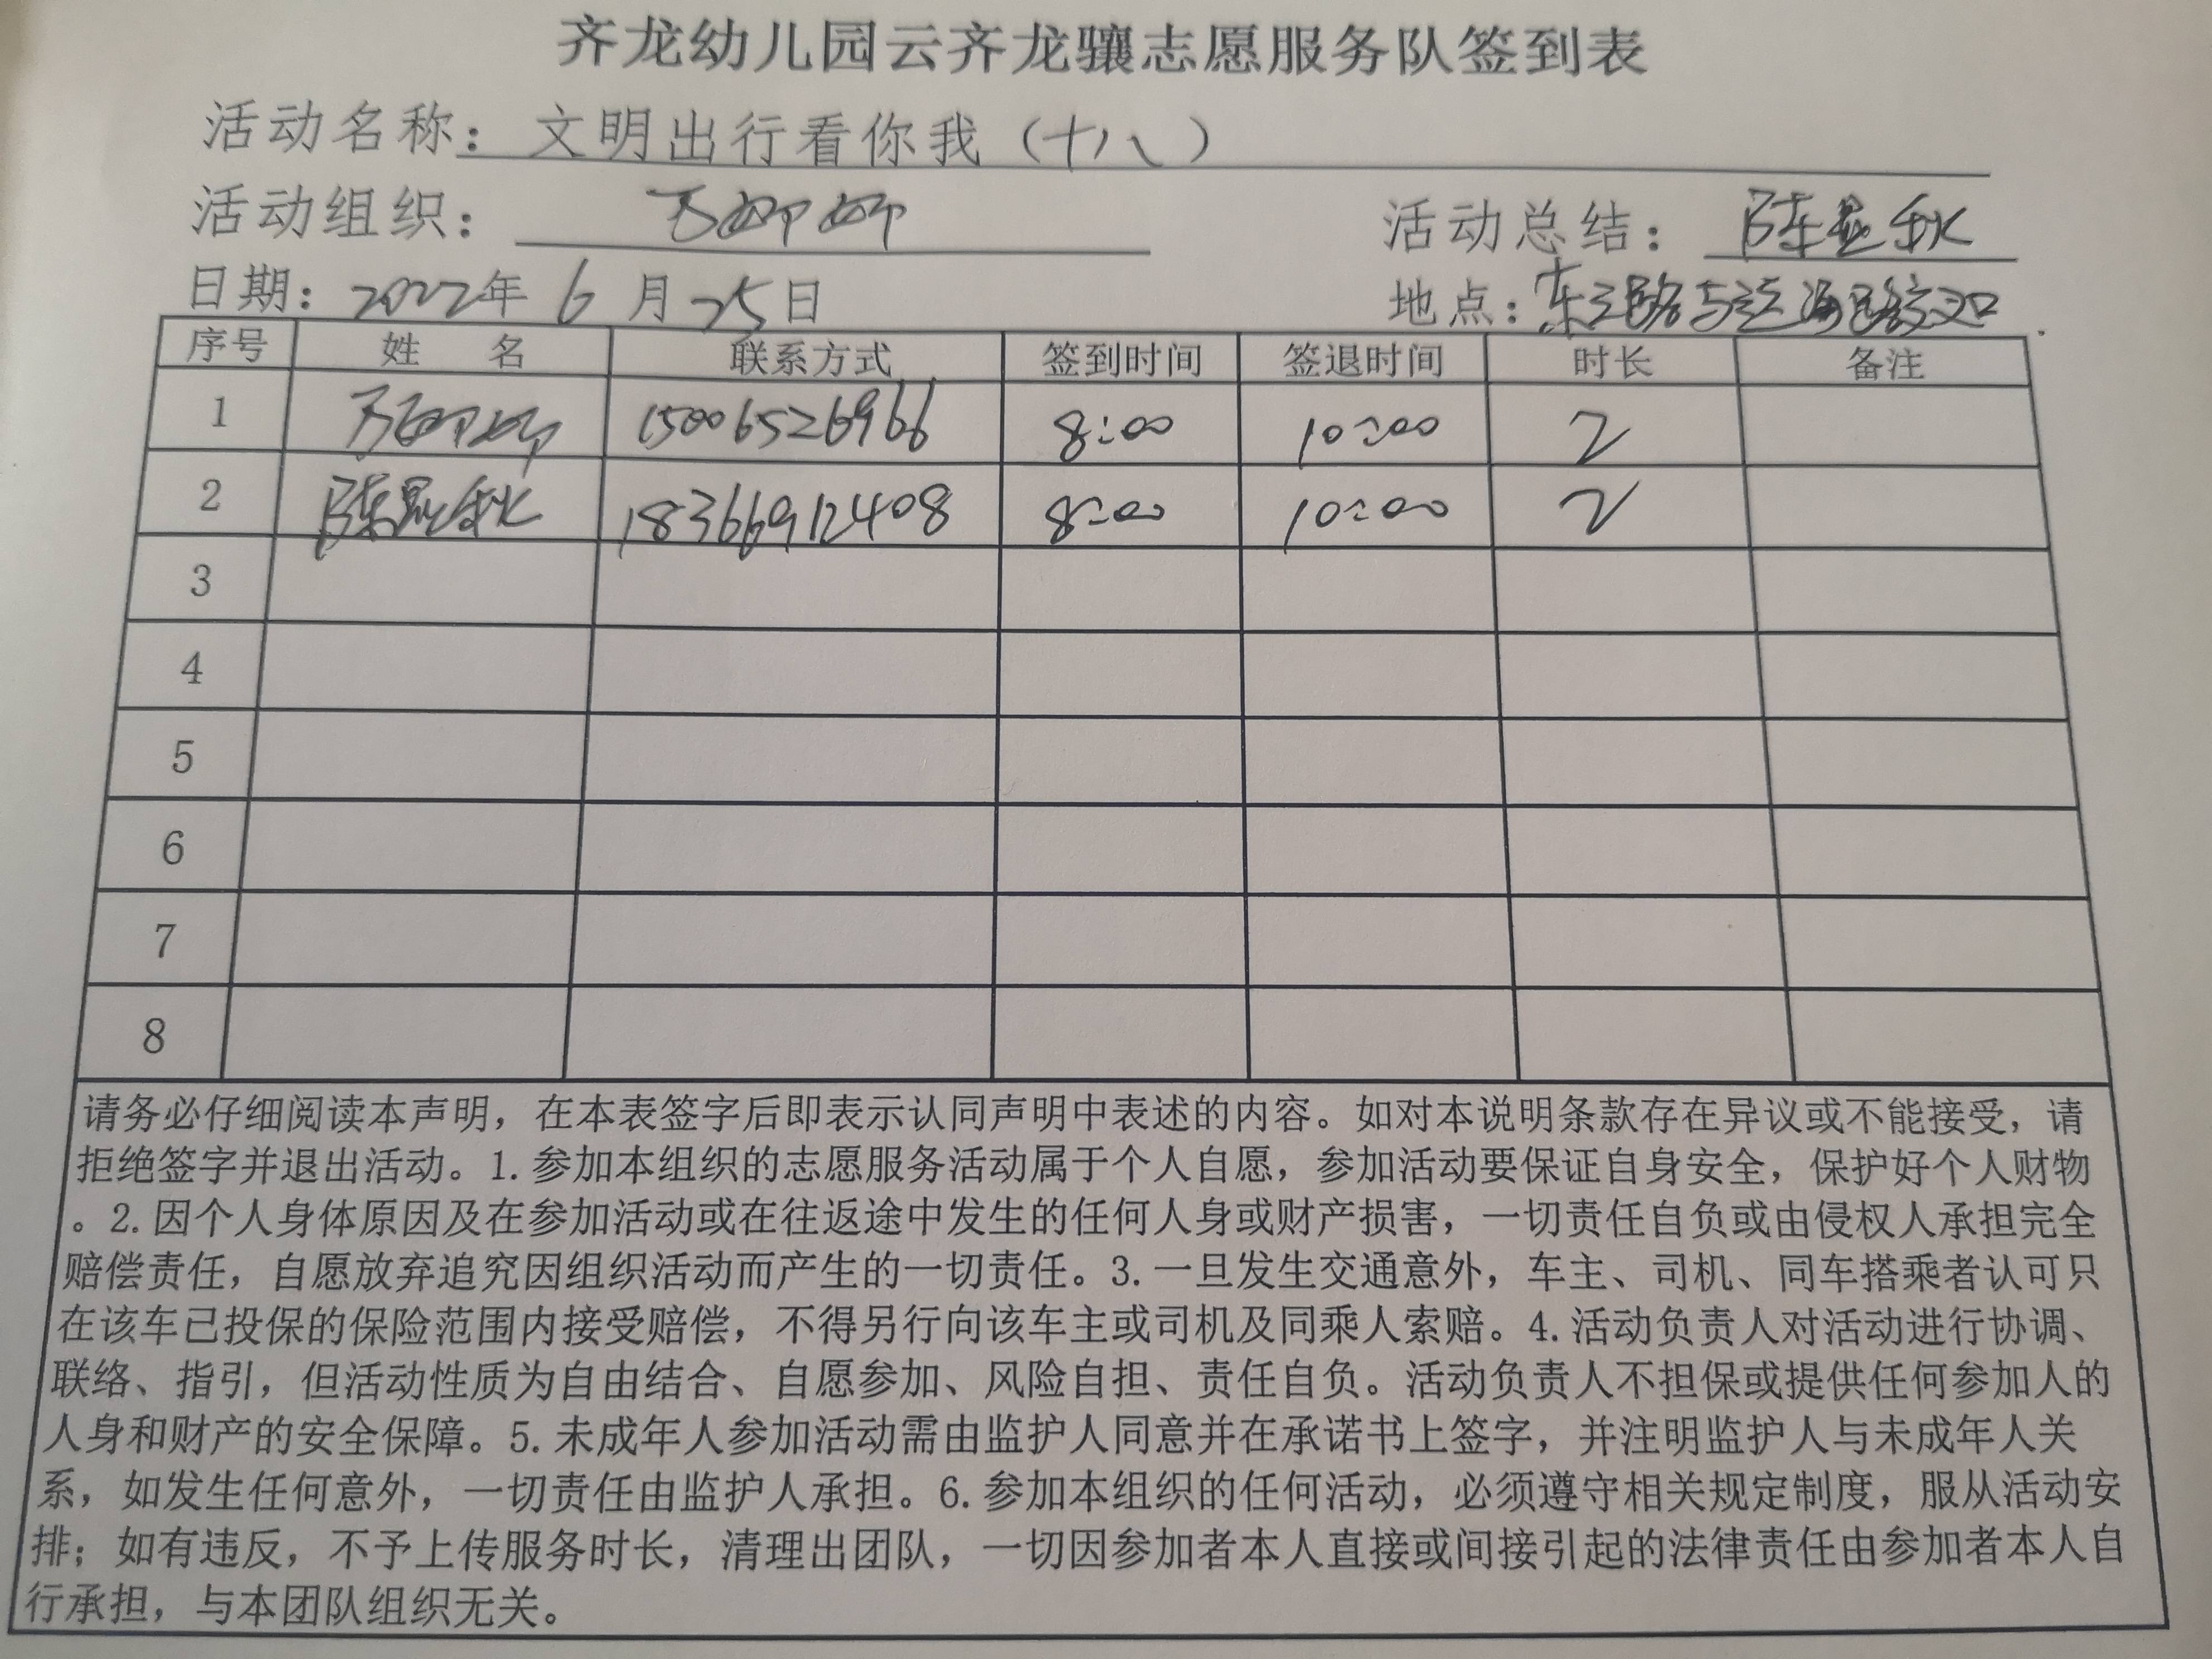 齐龙幼儿园云齐龙骧志愿服务队签到表
活动名称：文明出行看你我（十八）
活动组织： 活动总结：陈显秋
日期：2022年6月25日 地点：东三路与 路交叉口
序号 姓 名 联系方式 签到时间 签退时间 时长 备注
1 15006526966 8:00 10:00 2
2 陈显秋 18366912408 8:00 10:00 2
3
4
5
6
7
8
请务必仔细阅读本声明，在本表签字后即表示认同声明中表述的内容。如对本说明条款存在异议或不能接受，请
拒绝签字并退出活动。1.参加本组织的志愿服务活动属于个人自愿，参加活动要保证自身安全，保护好个人财物
。2.因个人身体原因及在参加活动或在往返途中发生的任何人身或财产损害，一切责任自负或由侵权人承担完全
赔偿责任，自愿放弃追究因组织活动而产生的一切责任。3.一旦发生交通意外，车主、司机、同车搭乘者认可只
在该车已投保的保险范围内接受赔偿，不得另行向该车主或司机及同乘人索赔。4.活动负责人对活动进行协调、
联络、指引，但活动性质为自由结合、自愿参加、风险自担、责任自负。活动负责人不担保或提供任何参加人的
人身和财产的安全保障。5.未成年人参加活动需由监护人同意并在承诺书上签字，并注明监护人与未成年人关
系，如发生任何意外，一切责任由监护人承担。6.参加本组织的任何活动，必须遵守相关规定制度，服从活动安
排；如有违反，不予上传服务时长，清理出团队，一切因参加者本人直接或间接引起的法律责任由参加者本人自
行承担，与本团队组织无关。